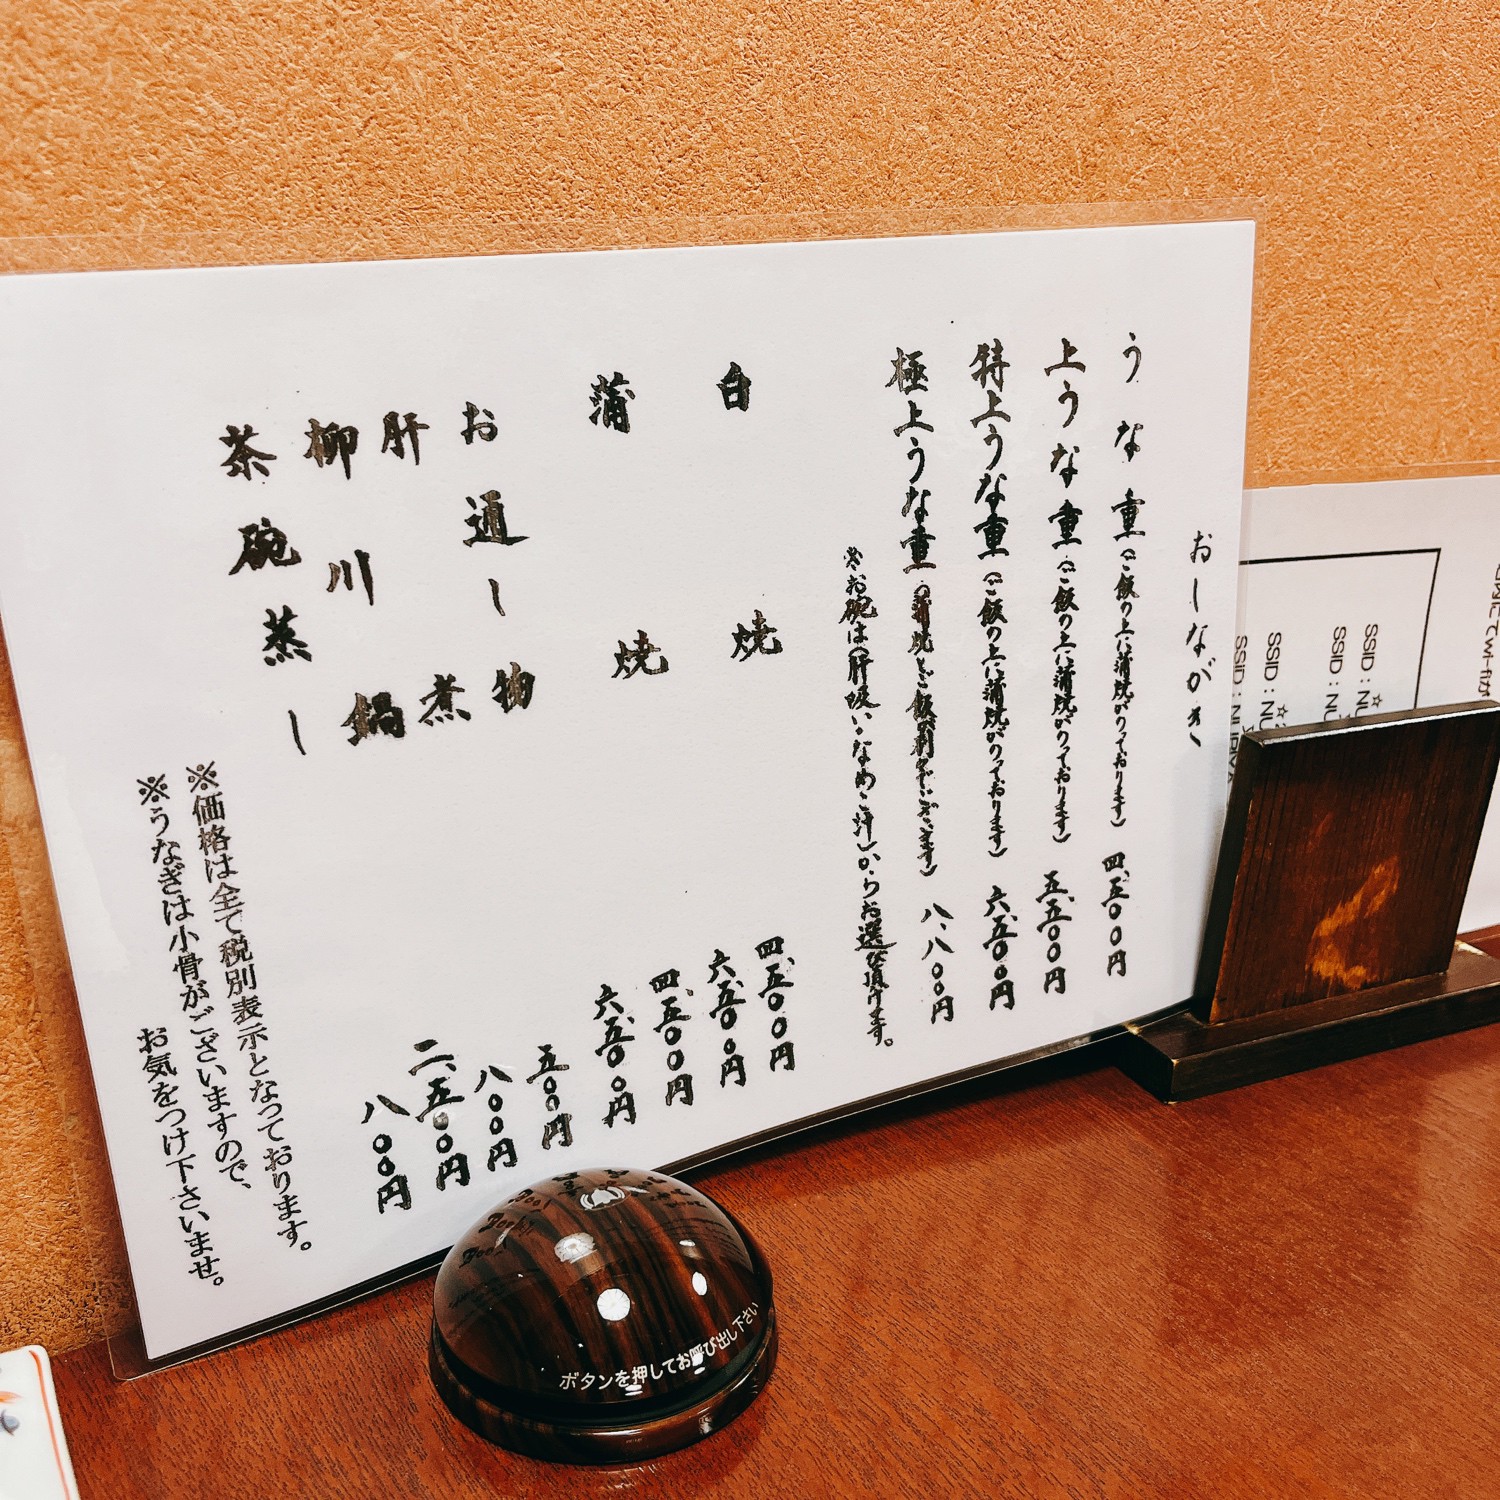 おしながき
うな重(ご飯の上に蒲焼がのっております) 四、五〇〇円
上うな重(ご飯の上に蒲焼がのっております) 五、五〇〇円
特上うな重(ご飯の上に蒲焼がのっております) 六、五〇〇円
極上うな重(蒲焼とご飯が別々でございます) 八、八〇〇円
※お碗は(肝吸い・なめこ汁)からお選び頂けます。
白焼 四、五〇〇円
六、五〇〇円
蒲焼 四、五〇〇円
六、五〇〇円
お通し物 五〇〇円
肝煮 八〇〇円
柳川鍋 二、五〇〇円
茶碗蒸し 八〇〇円
※価格は全て税別表示となっております。
※うなぎは小骨がございますので、
お気をつけ下さいませ。
ボタンを押してお呼び出し下さい
SSID:
SSID: NU
SSID:
SSID: NU